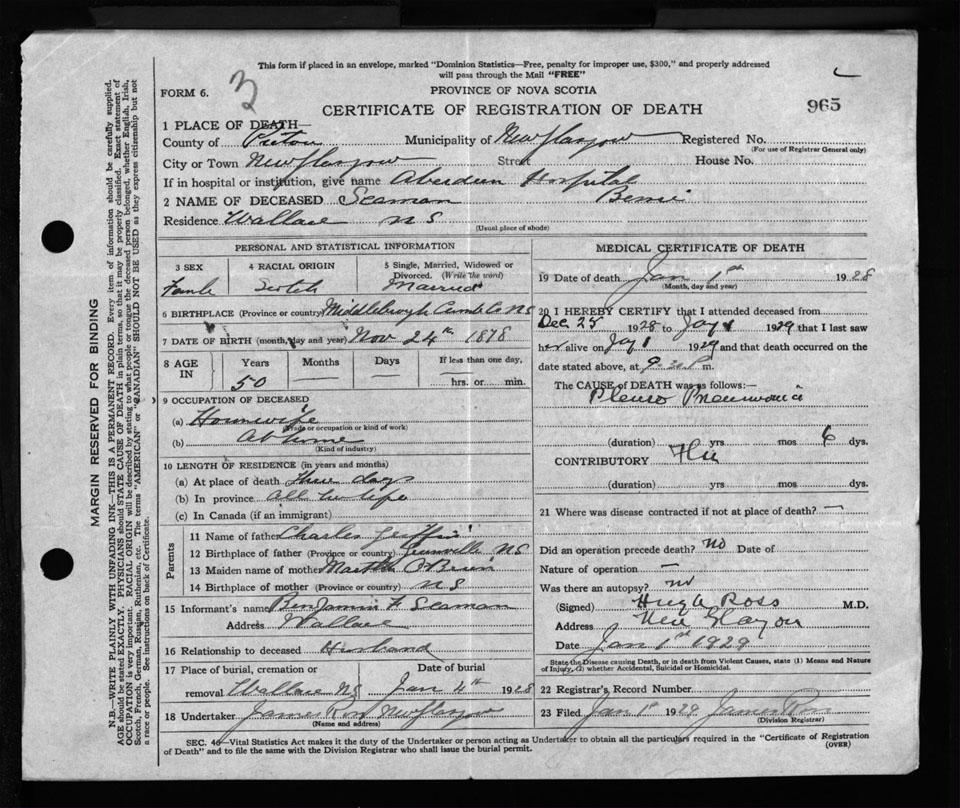 This form if placed in an envelope, marked "Dominion Statistics—Free, penalty for improper use, $300," and properly addressed
will pass through the Mail "FREE"
FORM 6.
3
PROVINCE OF NOVA SCOTIA
CERTIFICATE OF REGISTRATION OF DEATH
965
1 PLACE OF DEATH—
County of Pictou Municipality of New Glasgow Registered No.
(For use of Registrar General only)
City or Town New Glasgow Street House No.
If in hospital or institution, give name Aberdeen Hospital
2 NAME OF DECEASED Seaman Bessie
Residence Wallace N S
(Usual place of abode)
PERSONAL AND STATISTICAL INFORMATION
3 SEX 4 RACIAL ORIGIN 5 Single, Married, Widowed or
Divorced. (Write the word)
Female Scotch Married
6 BIRTHPLACE (Province or country) Middleborough Cumb Co NS
7 DATE OF BIRTH (month, day and year) Nov 24th 1878
8 AGE IN Years Months Days If less than one day,
50 — — hrs. or min.
9 OCCUPATION OF DECEASED
(a) Housewife
(Trade or occupation or kind of work)
(b) At home
(Kind of industry)
10 LENGTH OF RESIDENCE (in years and months)
(a) At place of death three days
(b) In province all her life
(c) In Canada (if an immigrant)
Parents
11 Name of father Charles Griffin
12 Birthplace of father (Province or country) NS
13 Maiden name of mother Martha O'Brien
14 Birthplace of mother (Province or country) NS
15 Informant's name Benjamin F Seaman
Address Wallace
16 Relationship to deceased Husband
17 Place of burial, cremation or Date of burial
removal Wallace NS Jan 4th 1928
18 Undertaker James Ross New Glasgow
(Name and address)
MEDICAL CERTIFICATE OF DEATH
19 Date of death Jan 1st 1928
(Month, day and year)
20 I HEREBY CERTIFY that I attended deceased from
Dec 25 1928 to Jay 1 1929 that I last saw
her alive on Jay 1 1929 and that death occurred on the
date stated above, at 9.20 P m.
The CAUSE OF DEATH was as follows:—
Pleuro Pneumonia
(duration) yrs mos 6 dys.
CONTRIBUTORY Flu
(duration) yrs. mos. dys.
21 Where was disease contracted if not at place of death? —
Did an operation precede death? no Date of
Nature of operation —
Was there an autopsy? no
(Signed) Hugh Ross M.D.
Address New Glasgow
Date Jan 1st 1929
State the Disease causing Death, or in death from Violent Causes, state (1) Means and Nature
of Injury, (2) whether Accidental, Suicidal or Homicidal.
22 Registrar's Record Number
23 Filed Jan 1st 1929 James Ross
(Division Registrar)
SEC. 46—Vital Statistics Act makes it the duty of the Undertaker or person acting as Undertaker to obtain all the particulars required in the "Certificate of Registration
of Death" and to file the same with the Division Registrar who shall issue the burial permit.
(OVER)
MARGIN RESERVED FOR BINDING
N.B.—WRITE PLAINLY WITH UNFADING INK—THIS IS A PERMANENT RECORD. Every item of information should be carefully supplied.
AGE should be stated EXACTLY. PHYSICIANS should STATE CAUSE OF DEATH in plain terms, so that it may be properly classified. Exact statement of
OCCUPATION is very important. RACIAL ORIGIN will be described by stating to what people or tongue the deceased person belonged, whether English, Irish,
Scotch, French, German, Russian, Ruthenian, etc. The terms "AMERICAN" or "CANADIAN" SHOULD NOT BE USED as they express citizenship but not
a race or people. See instructions on back of Certificate.